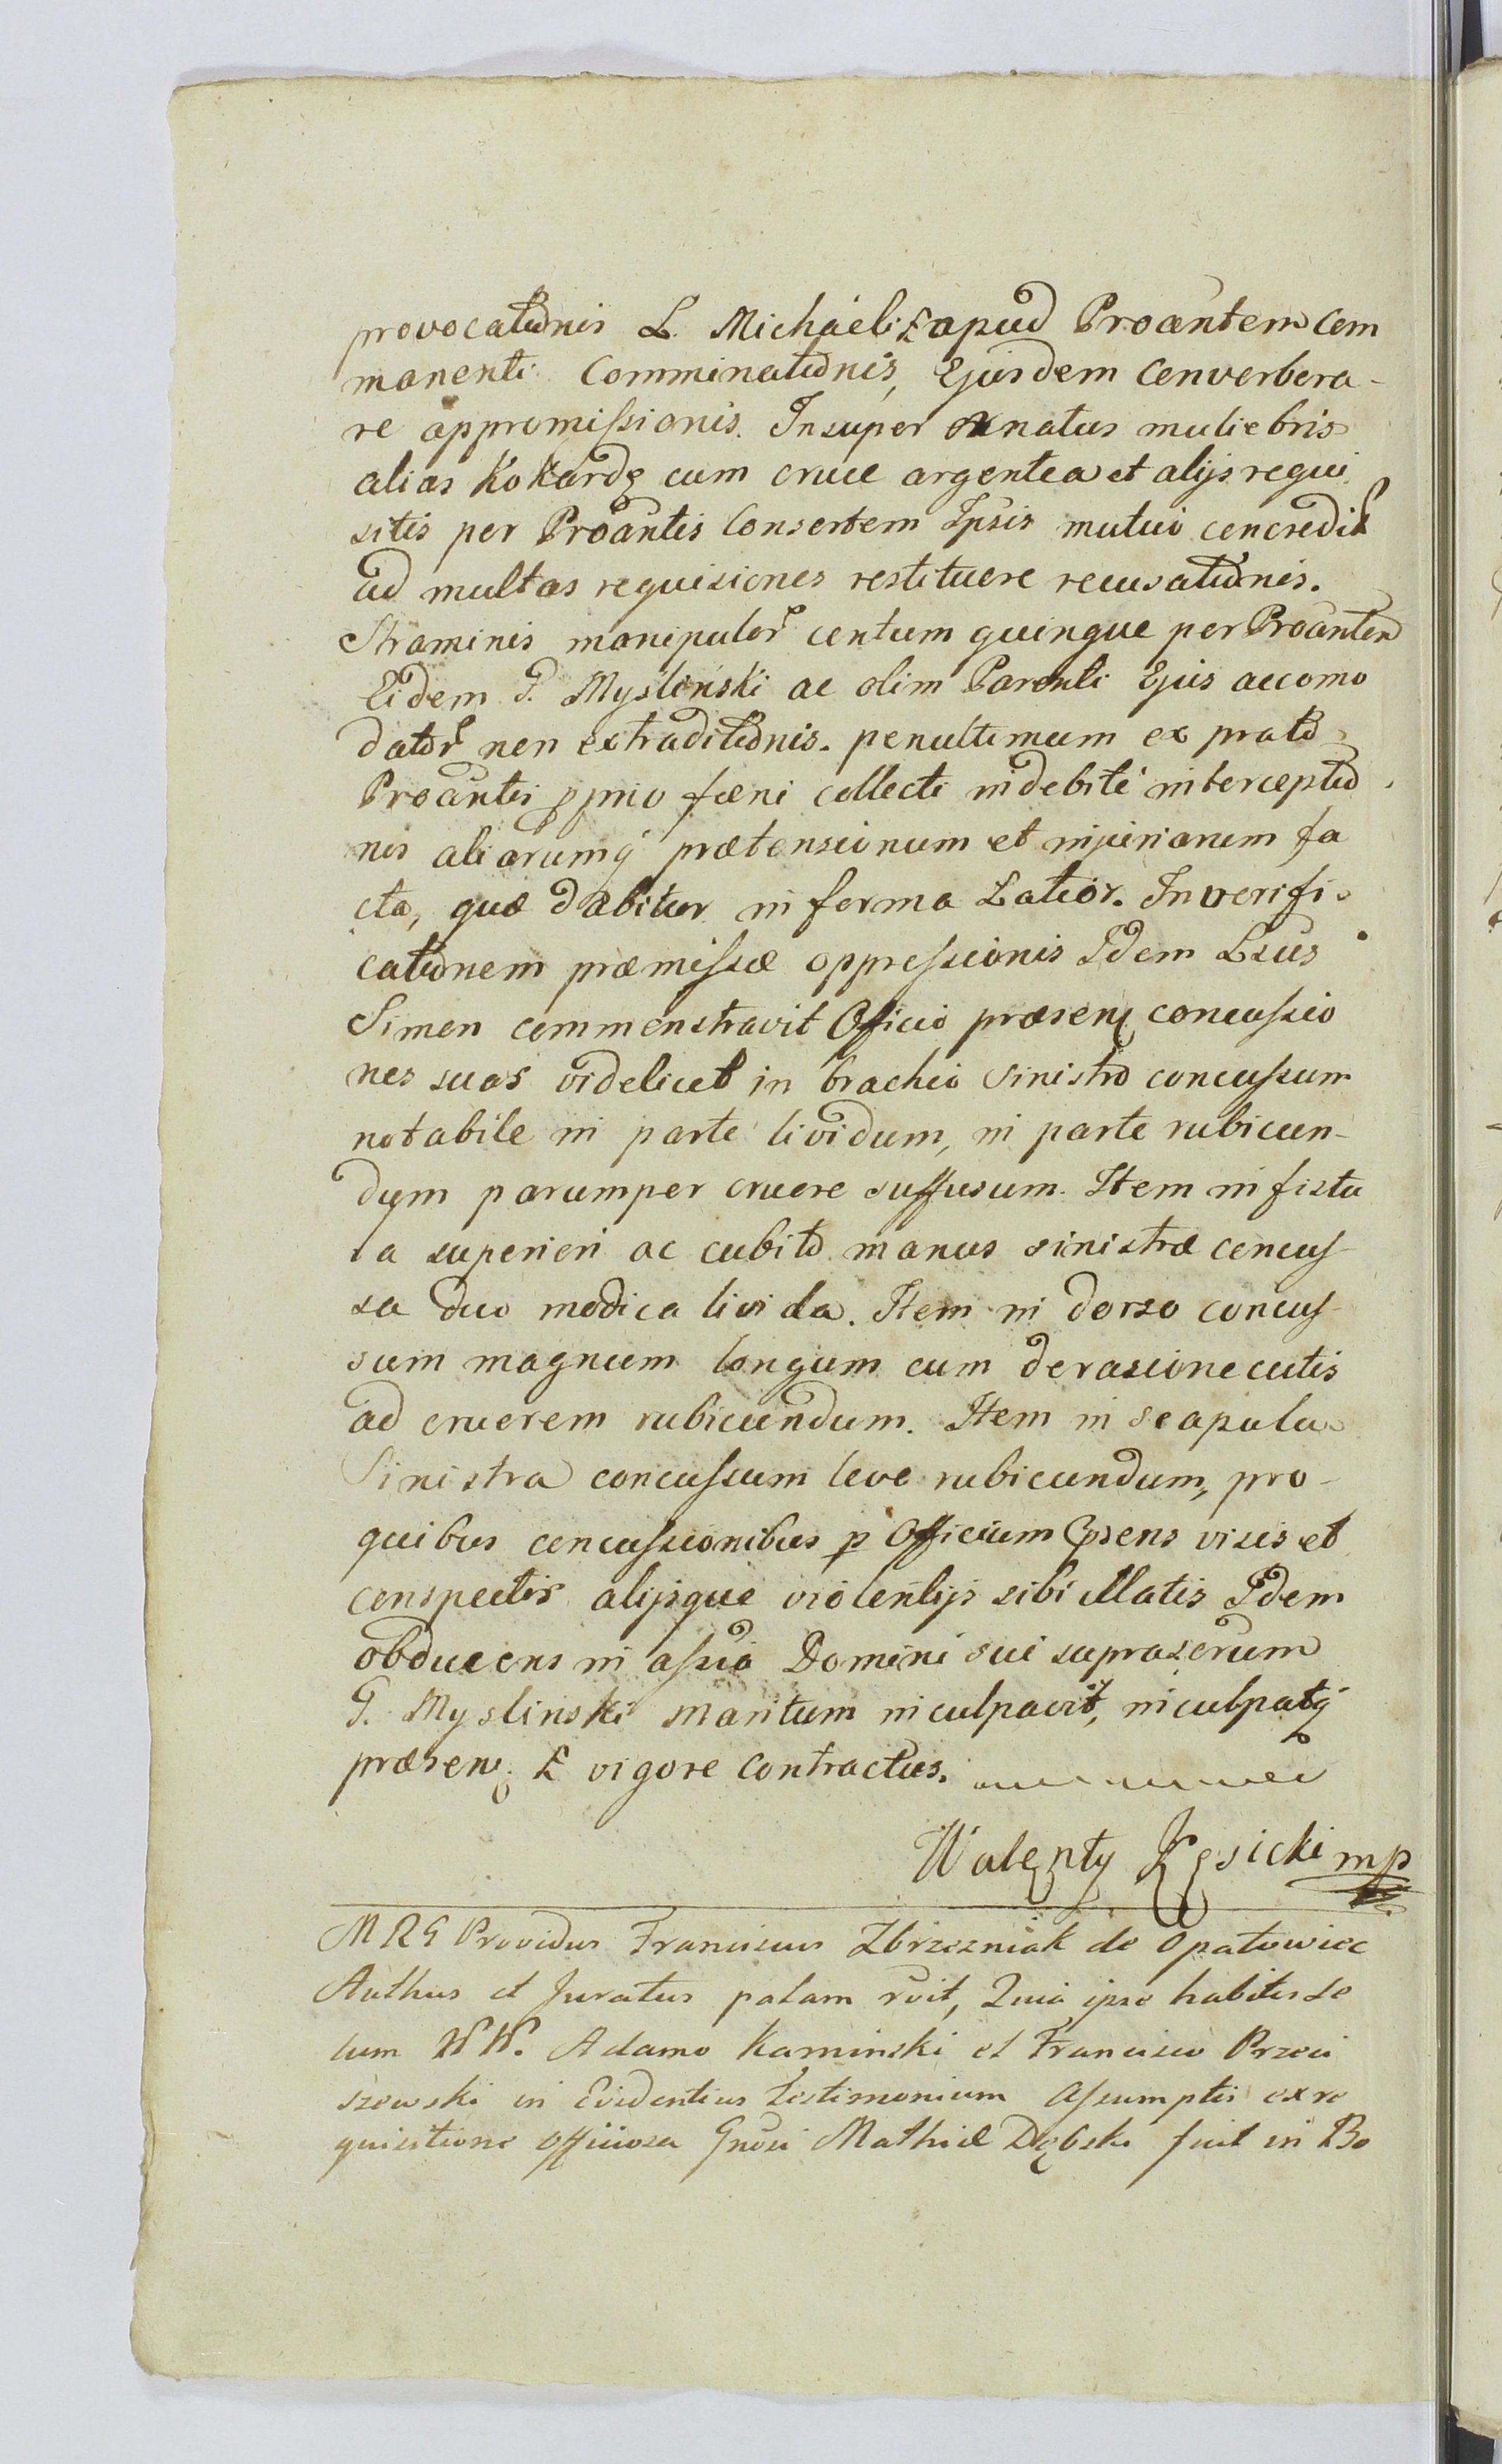 provocationis L. Michaeli apud Proantem com
manenti Comminationis, Ejusdem converbera-
re appromissionis. Insuper ornatus muliebris
alias Kokardę cum cruce argentea et alijs requi
sitis per Proantis Consortem Ipsis mutuo concredit
ad multas requisiones restituere recusationis.
Straminis manipulor centum quinque per Proantem
Eidem G. Myslinski ac olim Parenti Ejus accomo
dator non extraditionis. penultimum ex prato
Proantis pprio fœni collecti indebite interceptio
nis aliarumq prætensionum et injuriarum fa
cta, quæ dabitur in forma Latior. In verifi-
cationem præmissæ oppressionis Idem Lsus
Simon commonstravit Officio præsenę concussio
nes suas videlicet in brachio sinistro concussum
notabile in parte lividum, in parte rubicun-
dum parumper cruore suffusum. Item in fistu
la superiori ac cubito manus sinistræ concus-
sa duo modica livida. Item in dorso concus-
sum magnum longum cum derasione cutis
ad cruorem rubicundum. Item in scapula
sinistra concussum leve rubicundum, pro-
quibus concussionibus p Officium Psens visis et
conspectis alijsque violentijs sibi illatis Idem
obducens in assia Domini sui suprascrum
G. Myslinski Maritum inculpavit, inculpatq
præsenę. E vigore Contractus.
Walęnty Kęsicki mp
MRG Providus Franciscus Zbrzezniak de Opatowiec
Authus et Juratus palam rvit, Quia ipse habitis se
cum WW. Adamo Kaminski et Francisco Przeci
szewski in Evidentius testimonium assumptis ex re
quisitione officiosa Gnosi Mathiæ Dębski fuit in Bo